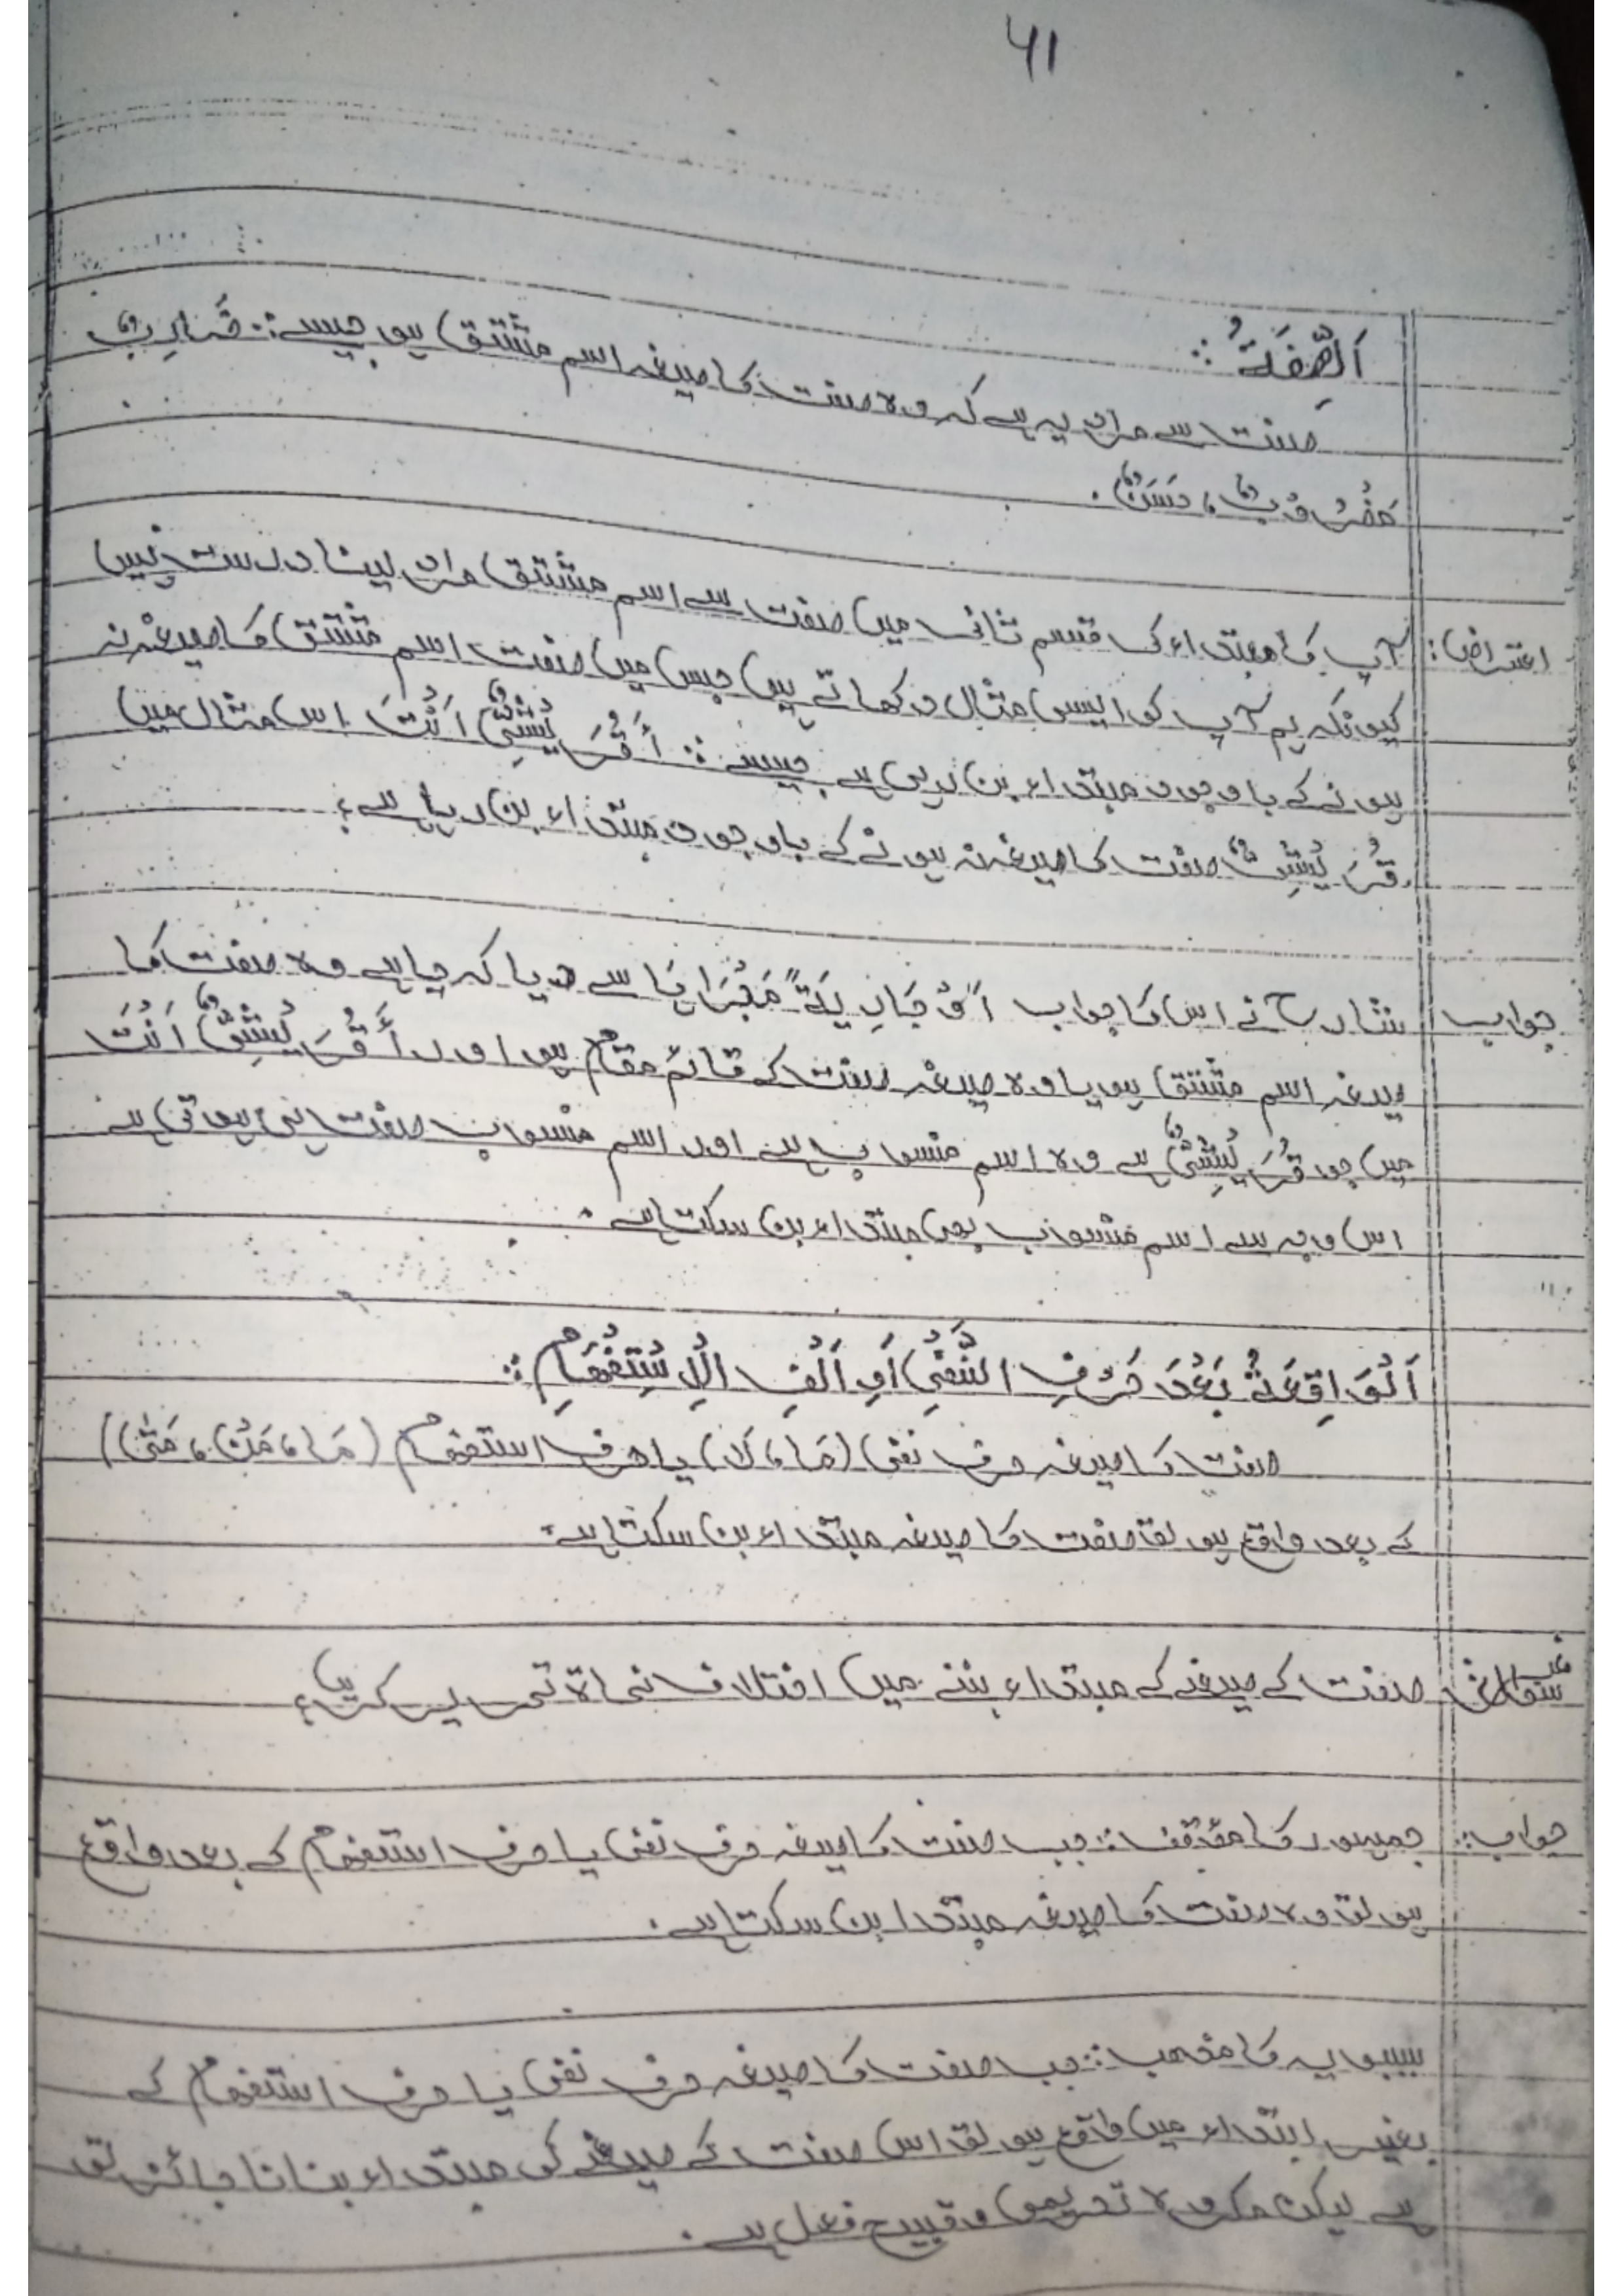 41
اَلصِّفَةُ :
صفت سے مراد یہ ہے کہ وہ صفت کا صیغہ اسم مشتق ہو جیسے: ضَارِبٌ
مَضْرُوْبٌ، حَسَنٌ۔
اعتراض: آپ کا مبتداء کی قسم ثانی میں صفت سے اسم مشتق مراد لینا درست نہیں
کیونکہ ہم آپ کو ایسی مثال دکھاتے ہیں جس میں صفت اسم مشتق کا صیغہ نہ
ہونے کے باوجود مبتداء بن رہی ہے جیسے: أَقُرَيْشِیٌّ اَنْتَ اس مثال میں
قُرَيْشِیٌّ صفت کا صیغہ نہ ہونے کے باوجود مبتداء بن رہا ہے؟
جواب شارح نے اس کا جواب اَوْ جَارِيَةً مَجْرَاهَا سے دیا کہ چاہے وہ صفت کا
صیغہ اسم مشتق ہو یا وہ صیغہ صفت کے قائم مقام ہو اور أَقُرَيْشِیٌّ اَنْتَ
میں جو قُرَيْشِیٌّ ہے وہ اسم منسوب ہے اور اسم منسوب صفت ہوتی ہے
اس وجہ سے اسم منسوب بھی مبتداء بن سکتا ہے۔
اَلْوَاقِعَةُ بَعْدَ حَرْفِ النَّفْیِ اَوْ اَلْفِ الْاِسْتِفْهَامِ :
صفت کا صیغہ حرف نفی (مَا، لَا) یا حرف استفہام (مَا، مَنْ، مَتٰی)
کے بعد واقع ہو تو صفت کا صیغہ مبتداء بن سکتا ہے۔
صفت کے صیغے کے مبتداء بننے میں اختلاف نحاۃ تحریر کریں؟
جواب: جمہور کا مؤقف: جب صفت کا صیغہ حرف نفی یا حرف استفہام کے بعد واقع
ہو تو وہ صفت کا صیغہ مبتدا بن سکتا ہے۔
سیبویہ کا مذہب: جب صفت کا صیغہ حرف نفی یا حرف استفہام کے
بغیر ابتداء میں واقع ہو تو اس صفت کے صیغے کی مبتداء بنانا جائز تو
ہے لیکن مکروہ تحریمی و قبیح فعل ہے۔